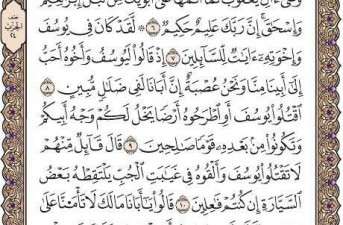 وَإِسْحَٰقَ إِنَّ رَبَّكَ عَلِيمٌ حَكِيمٌ ٦ لَّقَدْ كَانَ فِى يُوسُفَ
وَإِخْوَتِهِۦٓ ءَايَٰتٌ لِّلسَّآئِلِينَ ٧ إِذْ قَالُوا۟ لَيُوسُفُ وَأَخُوهُ أَحَبُّ
إِلَىٰٓ أَبِينَا مِنَّا وَنَحْنُ عُصْبَةٌ إِنَّ أَبَانَا لَفِى ضَلَٰلٍ مُّبِينٍ ٨
ٱقْتُلُوا۟ يُوسُفَ أَوِ ٱطْرَحُوهُ أَرْضًا يَخْلُ لَكُمْ وَجْهُ أَبِيكُمْ
وَتَكُونُوا۟ مِنۢ بَعْدِهِۦ قَوْمًا صَٰلِحِينَ ٩ قَالَ قَآئِلٌ مِّنْهُمْ
لَا تَقْتُلُوا۟ يُوسُفَ وَأَلْقُوهُ فِى غَيَٰبَتِ ٱلْجُبِّ يَلْتَقِطْهُ بَعْضُ
ٱلسَّيَّارَةِ إِن كُنتُمْ فَٰعِلِينَ ١٠ قَالُوا۟ يَٰٓأَبَانَا مَا لَكَ لَا تَأْمَ۫نَّا عَلَىٰ